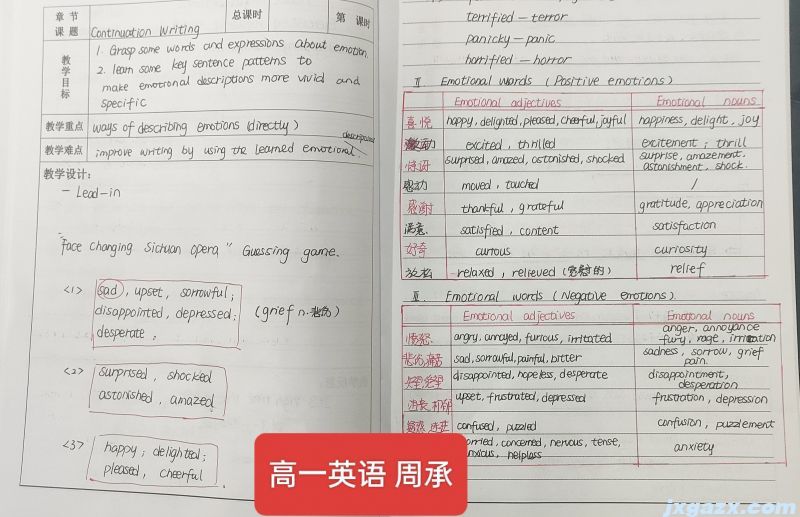 章节
课题
Continuation Writing
总课时
第 课时
教学目标
1. Grasp some words and expressions about emotion.
2. learn some key sentence patterns to
make emotional descriptions more vivid and
specific
教学重点
ways of describing emotions (directly)
教学难点
improve writing by using the learned emotional
descriptions
教学设计:
一 Lead-in
"face changing Sichuan opera" Guessing game.
<1> sad, upset, sorrowful;
disappointed, depressed;
desperate;
(grief n. 悲伤)
<2> surprised, shocked
astonished, amazed.
<3> happy; delighted;
pleased, cheerful
terrified - terror
panicky - panic
horrified - horror
II. Emotional words (Positive emotions)
Emotional adjectives Emotional nouns
喜悦 happy, delighted, pleased, cheerful, joyful happiness, delight, joy
激动 excited, thrilled excitement; thrill
惊讶 surprised, amazed, astonished, shocked surprise, amazement,
astonishment, shock.
感动 moved, touched /
感谢 thankful, grateful gratitude, appreciation
满意 satisfied, content satisfaction
好奇 curious curiosity
放松 relaxed, relieved relief
III. Emotional words (Negative emotions)
Emotional adjectives Emotional nouns
愤怒 angry, annoyed, furious, irritated anger, annoyance
fury, rage, irritation
悲伤,痛苦 sad, sorrowful, painful, bitter sadness, sorrow, grief
pain.
失望,绝望 disappointed, hopeless, desperate disappointment,
desperation
沮丧,抑郁 upset, frustrated, depressed frustration, depression
confused, puzzled confusion, puzzlement
worried, concerned, nervous, tense,
anxious, helpless anxiety
高一英语 周承
jxgazx.com